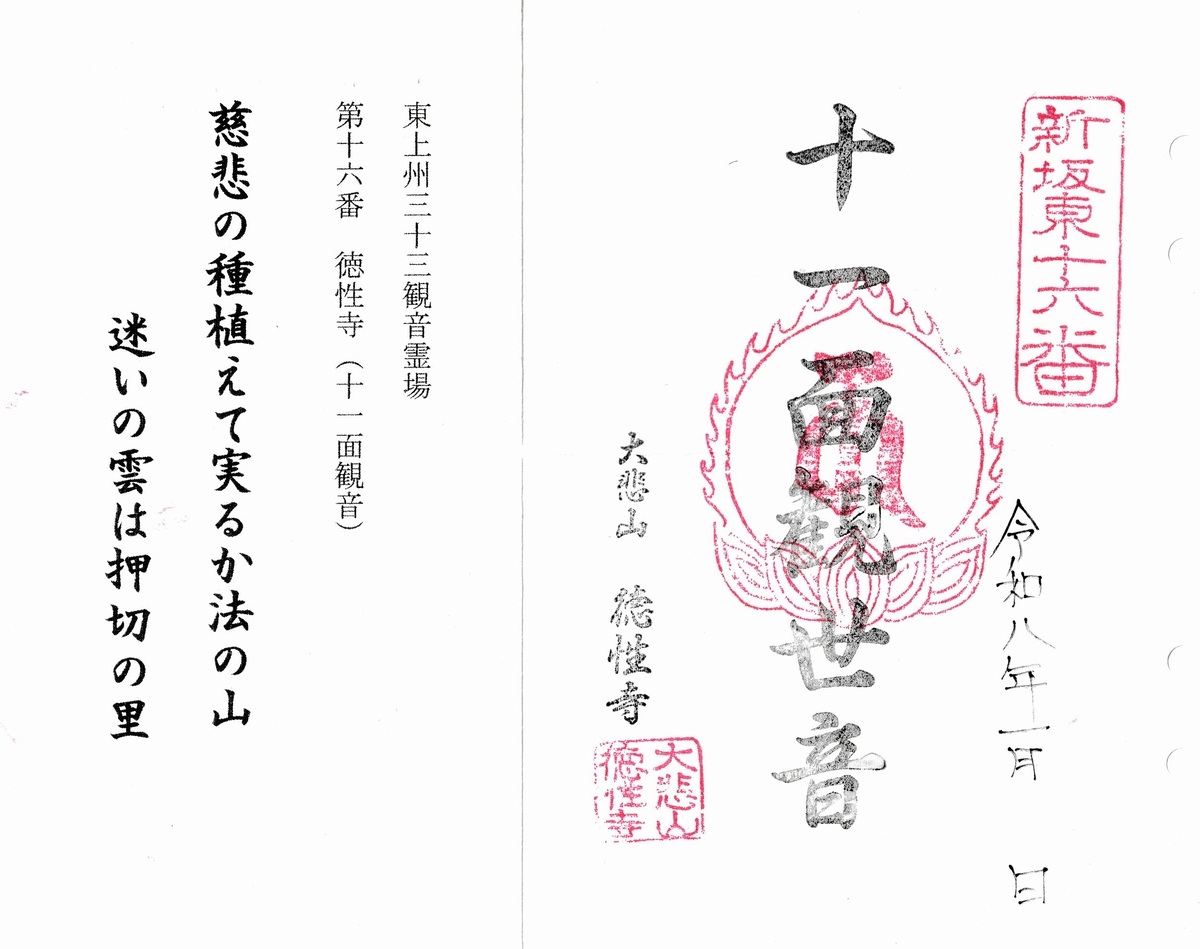 新坂東十六番
令和八年一月　日
十一面観世音
大悲山　徳性寺
大悲山
徳性寺
東上州三十三観音霊場
第十六番　徳性寺（十一面観音）
慈悲の種植えて実るか法の山
迷いの雲は押切の里